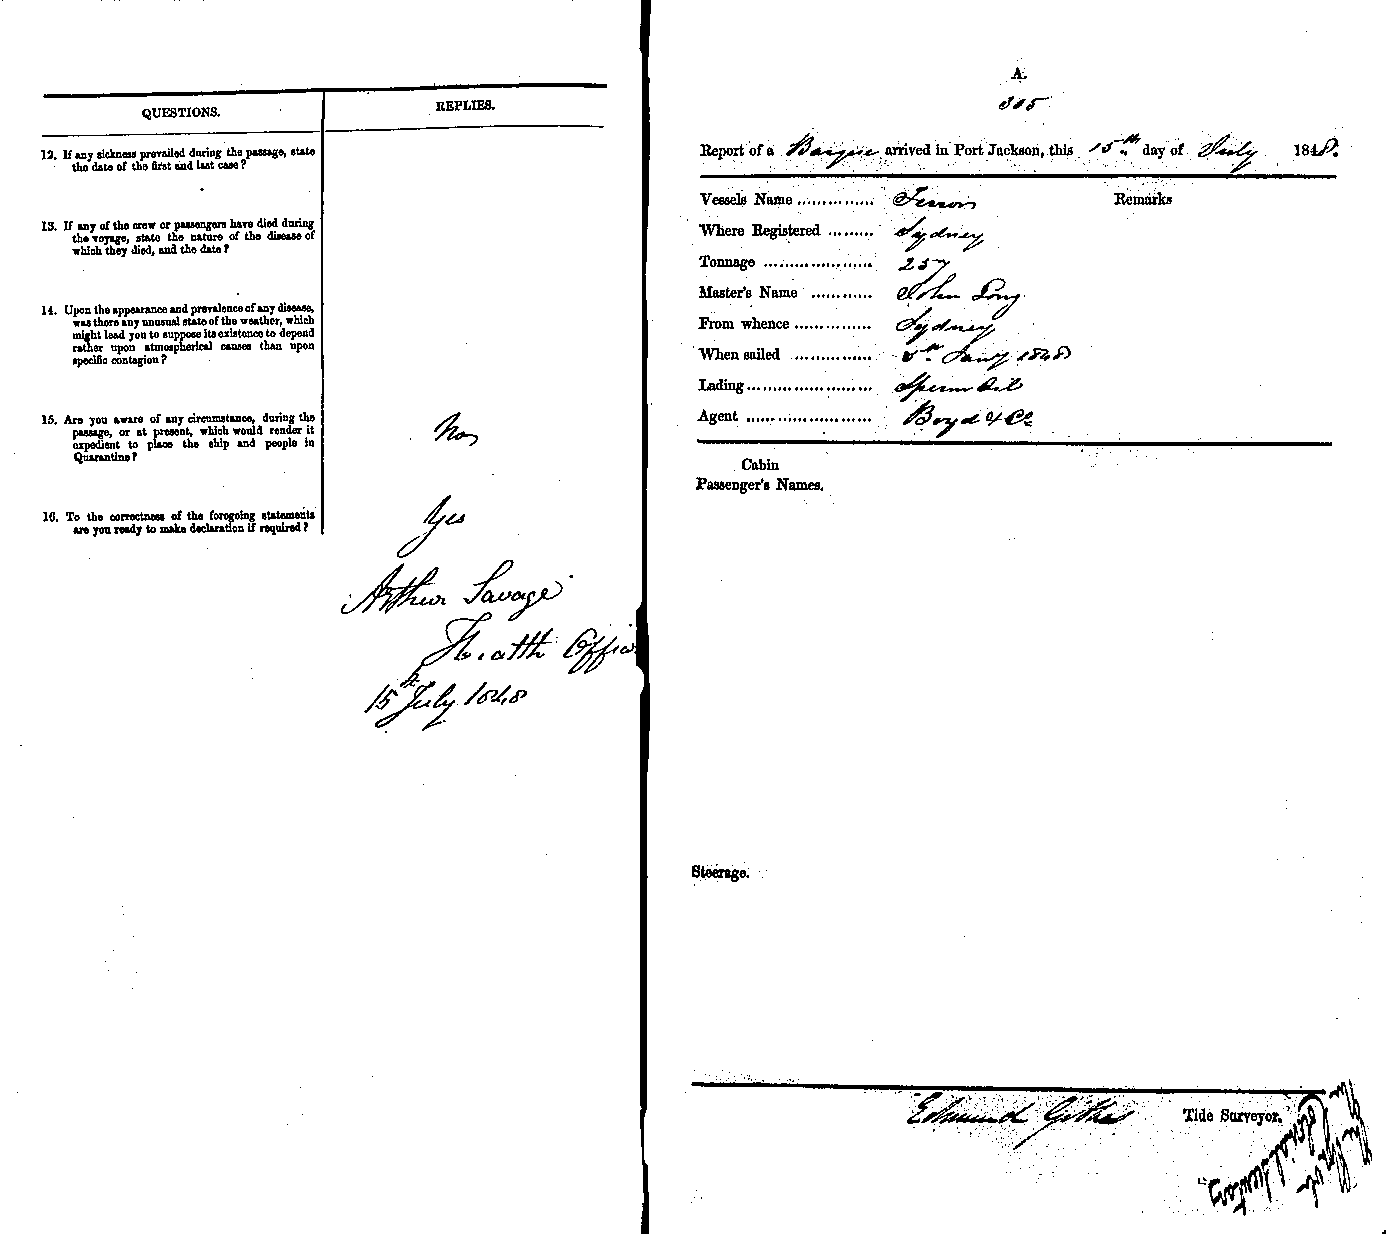 QUESTIONS.
REPLIES.
12. If any sickness prevailed during the passage, state
the date of the first and last case?
13. If any of the crew or passengers have died during
the voyage, state the nature of the disease of
which they died, and the date?
14. Upon the appearance and prevalence of any disease,
was there any unusual state of the weather, which
might lead you to suppose its existence to depend
rather upon atmospherical causes than upon
specific contagion?
15. Are you aware of any circumstance, during the
passage, or at present, which would render it
expedient to place the ship and people in
Quarantine?
No
16. To the correctness of the foregoing statements
are you ready to make declaration if required?
Yes
Arthur Savage
Health Officer
15th July 1848
A.
305
Report of a Barque arrived in Port Jackson, this 15th day of July 1848.
Vessels Name ............... Terror
Remarks
Where Registered ......... Sydney
Tonnage ..................... 257
Master's Name ............ John Long
From whence ............... Sydney
When sailed ............... 5th Jany 1848
Lading........................ Sperm Oil
Agent ........................ Boyd & Co
Cabin
Passenger's Names.
Steerage.
Edmund
Tide Surveyor.
The
Colonial Secretary